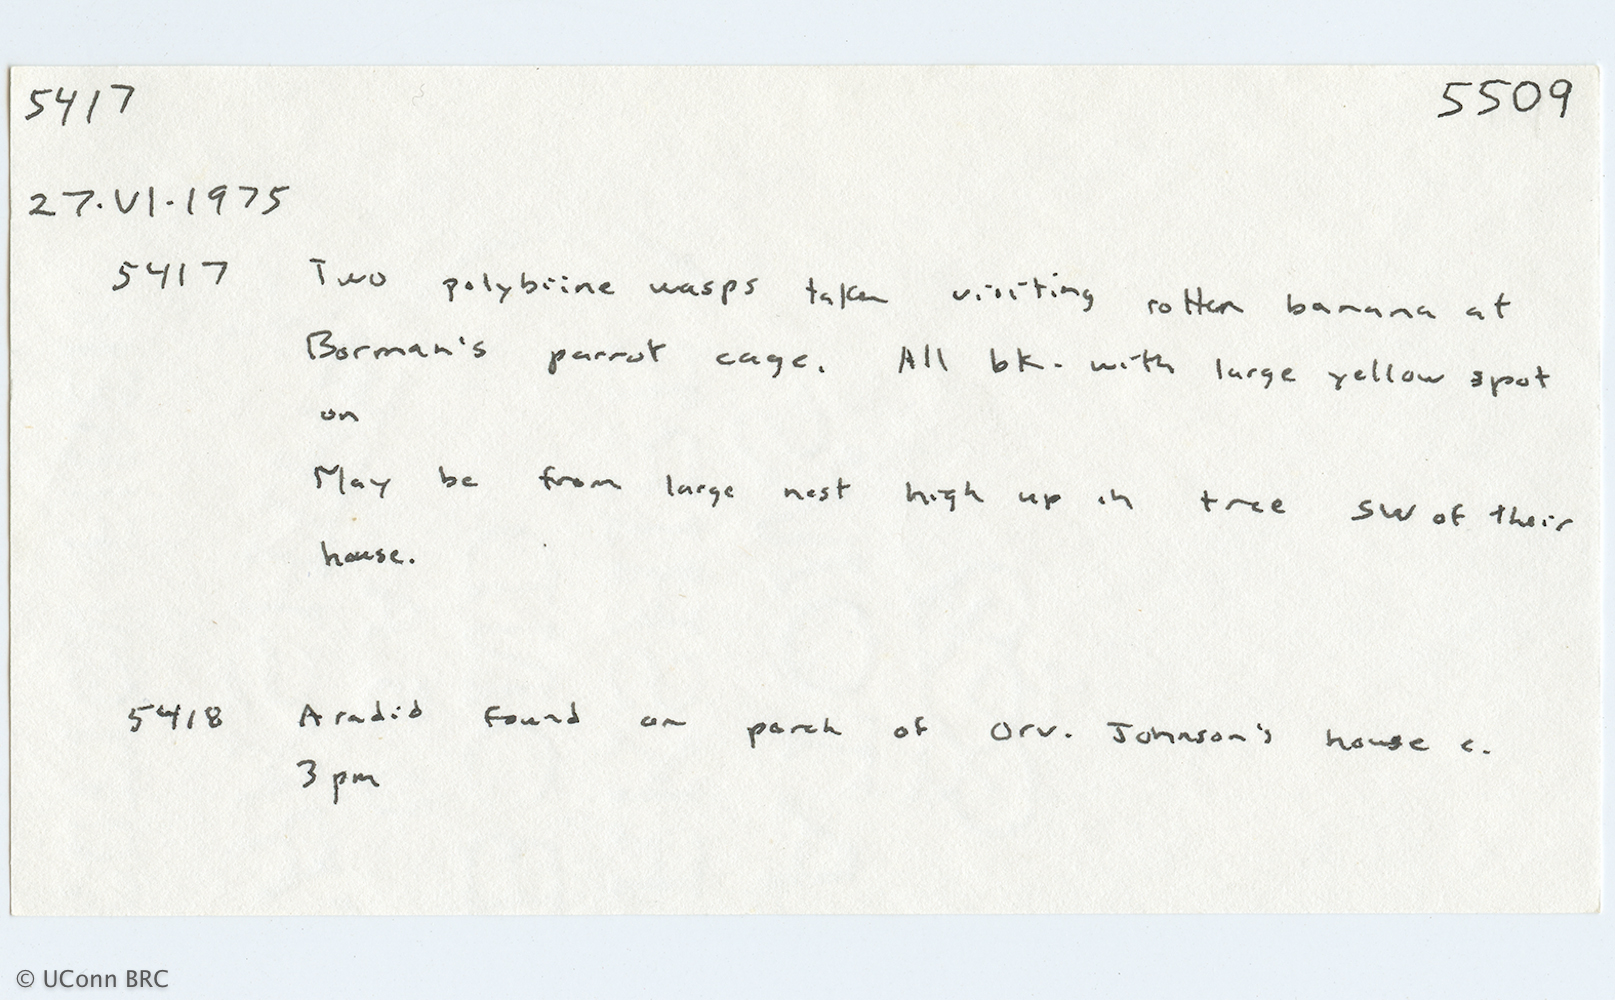 5417 5509
27.VI.1975
5417 Two polybiine wasps taken visiting rotten banana at
Borman's parrot cage. All bk. with large yellow spot
on
May be from large nest high up in tree SW of their
house.
5418 Aradid found on porch of Orv. Johnson's house c.
3 pm
© UConn BRC